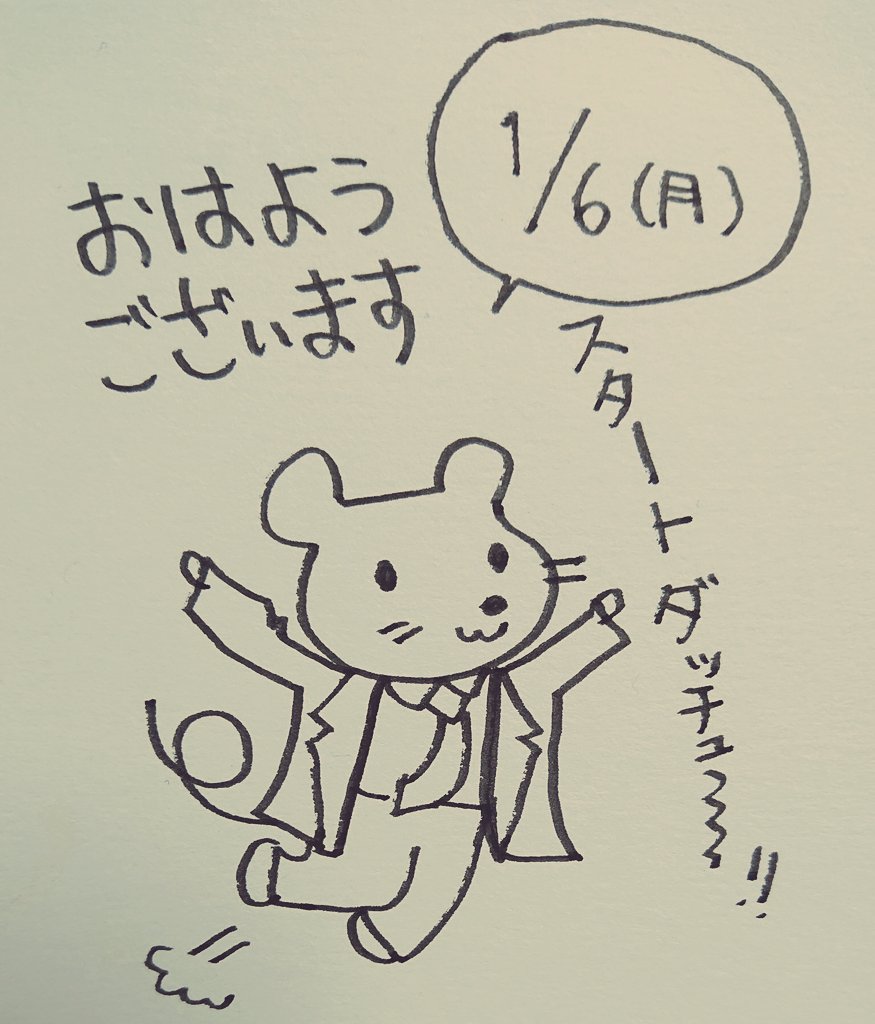 1/6(月)
おはよう
ございます
スタートダッチュ〜〜〜!!